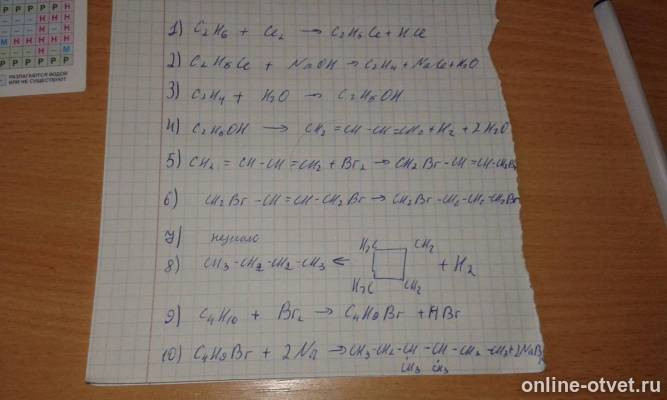 РАЗЛАГАЮТСЯ ВОДОЙ
ИЛИ НЕ СУЩЕСТВУЮТ
1) C2H6 + Cl2 → C2H5Cl + HCl
2) C2H5Cl + NaOH → C2H4 + NaCl + H2O
3) C2H4 + H2O → C2H5OH
4) C2H5OH → CH2 = CH - CH = CH2 + H2 + 2H2O
5) CH2 = CH - CH = CH2 + Br2 → CH2Br - CH = CH - CH2Br
6) CH2Br - CH = CH - CH2Br → CH2Br - CH2 - CH2 - CH2Br
7)
8) CH3 - CH2 - CH2 - CH3 ← H2C CH2 H2C CH2 + H2
9) C4H10 + Br2 → C4H9Br + HBr
10) C4H9Br + 2Na → CH3 - CH2 - CH - CH - CH2 - CH3 + 2NaBr
CH3 CH3
online-otvet.ru